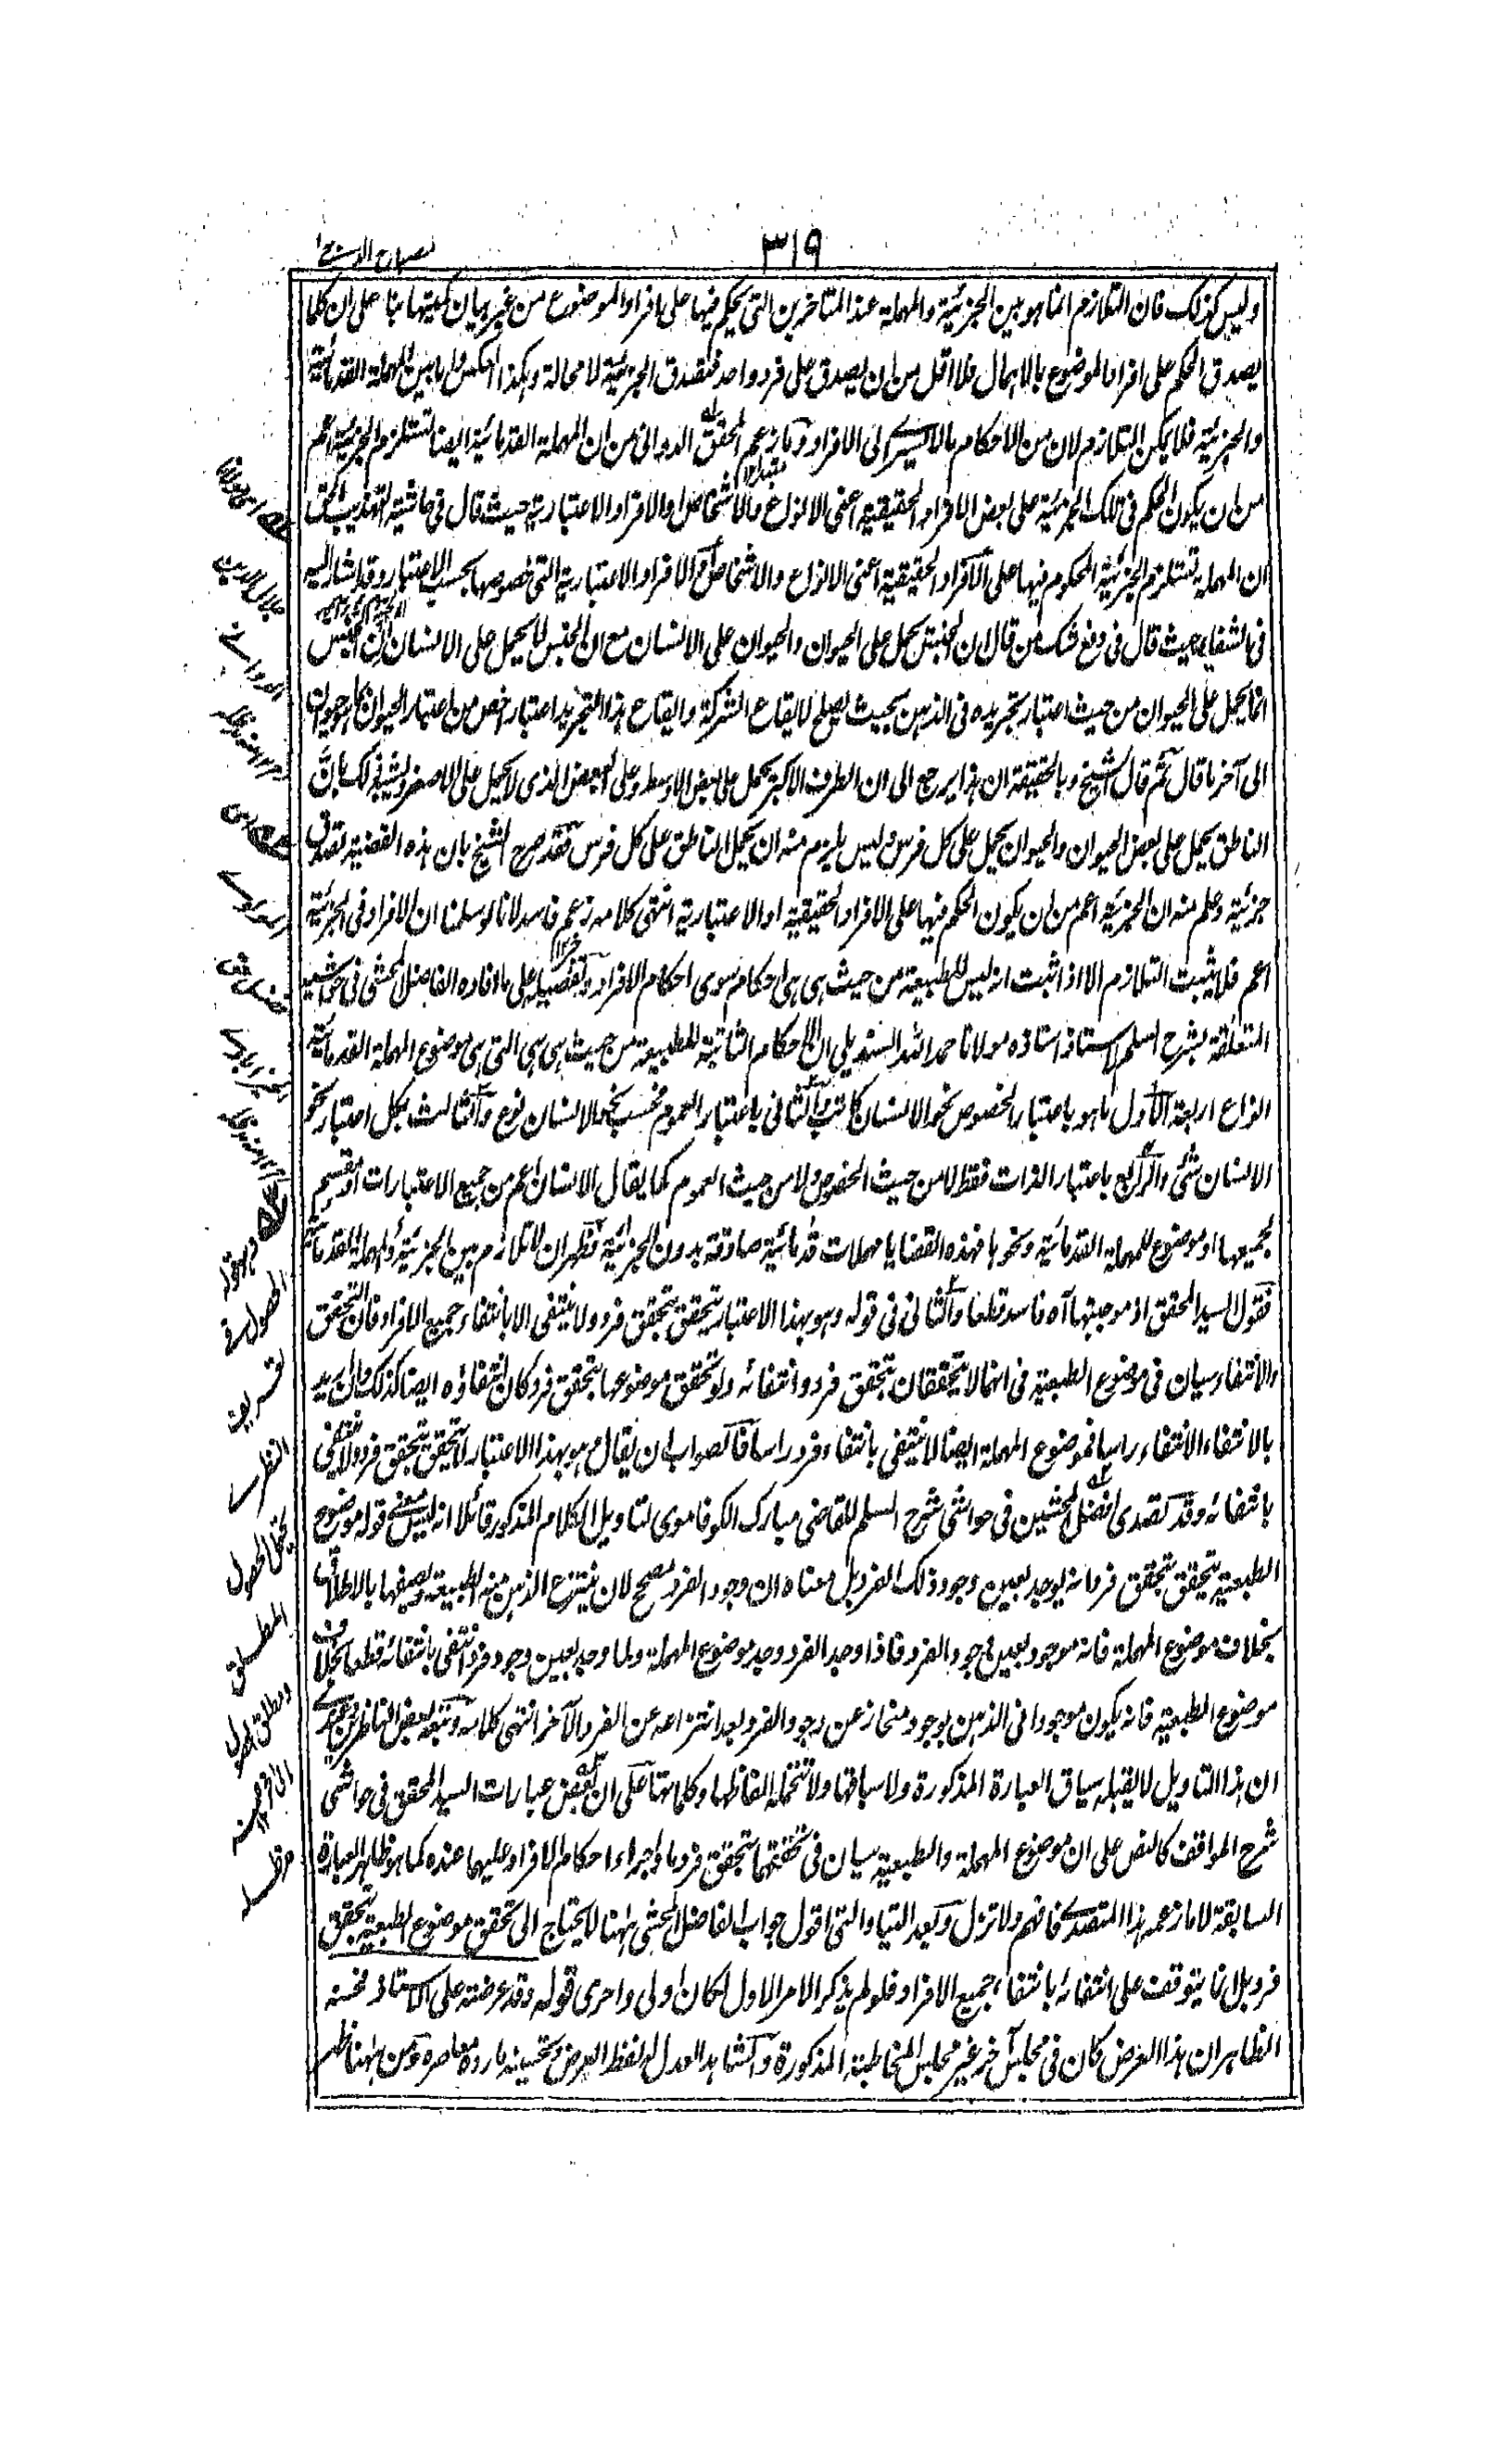 ٣١٩
مصباح الدجى
وليس كذلك فان التلازم انما هو بين الجزئية والمهملة عند المتاخرين التي يحكم فيها على افراد الموضوع من غير بيان كميتها بناء على ان كلما
يصدق الحكم على افراد الموضوع بالاهمال فلا اقل من ان يصدق على فرد واحد فتصدق الجزئية لا محالة وبكذا العكس واما بين المهملة القدمائية
والجزئية فلا يمكن التلازم لان من الاحكام مالا يسرے الى الافراد وما زعم المحقق الدوانى من ان المهملة القدمائية ايضا تستلزم الجزئية اعم
من ان يكون الحكم فى تلك الجزئية على بعض الافراد الحقيقية اعنى الانواع والاشخاص او الافراد الاعتبارية حيث قال فى حاشية التهذيب الحق
ان المهملة تستلزم الجزئية المحكوم فيها على الافراد الحقيقية اعنى الانواع والاشخاص والافراد الاعتبارية التى خصوصها بحسب الاعتبار وقد اشار اليه
فى الشفاء حيث قال فى دفع شك من قال ان الجنس يحمل على الحيوان والحيوان على الانسان مع ان الجنس لا يحمل على الانسان ان الجنس
انما يحمل على الحيوان من حيث اعتبار تجريده فى الذهن بحيث يصلح لايقاع الشركة وايقاع هذا التجريد اعتبار اخص من اعتبار الحيوان بما هو حيوان
الى آخر ما قال ثم قال الشيخ وبالحقيقة ان هذا يرجع الى ان الطرف الاكبر يحمل على بعض الاوسط وعلى البعض الذى لا يحمل على الاصغر وشبه ذلك بان
الناطق يحمل على بعض الحيوان والحيوان يحمل على كل فرس وليس يلزم منه ان يحمل الناطق على كل فرس فقد صرح الشيخ بان هذه القضية تصدق
جزئية وعلم منه ان الجزئية اعم من ان يكون الحكم فيها على الافراد الحقيقية او الاعتبارية انتهى كلامه زعم فاسد لانا لو سلمنا ان الافراد فى الجزئية
اعم فلا يثبت التلازم الا اذا ثبت انه ليس للطبيعة من حيث هى هى احكام سوى احكام الافراد وتفصيله على ما افاده الفاضل المحشى فى حواشيه
المتعلقة بشرح السلم لاستاذ استاذه مولانا حمد الله السنديلى ان الاحكام الثابتة للطبيعة من حيث هى هى التى هى موضوع المهملة القدمائية
انواع اربعة الاول ما هو باعتبار الخصوص نحو الانسان كاتب والثانى باعتبار العموم فحسب نحو الانسان نوع والثالث بكل اعتبار نحو
الانسان شئ والرابع باعتبار الذات فقط لا من حيث الخصوص ولا من حيث العموم كما يقال الانسان اعم من جميع الاعتبارات او مقسم
لجميعها او موضوع للمهملة القدمائية ونحوها فهذه القضايا مهملات قدمائية صادقة بدون الجزئية فظهر ان لا تلازم بين الجزئية والمهملة القدمائية
فقول السيد المحقق اذ موجبتها آه فاسد قطعا والثانى فى قوله وهو بهذا الاعتبار يتحقق بتحقق فرد ولا ينتفى الا بانتفاء جميع الافراد فان التحقق
والانتفاء سيان فى موضوع الطبيعية فى انهما لا يتحققان بتحقق فرد وانتفائه ولو تحقق موضوعها بتحقق فرد كان انتفاؤه ايضا كذلك وان اريد
بالانتفاء الانتفاء راسا فموضوع المهملة ايضا لا ينتفى بانتفاء فرد راسا فالصواب ان يقال هو بهذا الاعتبار لا يتحقق بتحقق فرد ولا ينتفى
بانتفائه وقد تصدى افضل المحشين فى حواشى شرح السلم للقاضى مبارك الكوفاموى لتاويل الكلام المذكور قائلا انه ليس معنے قوله موضوع
الطبيعية يتحقق بتحقق فرد انه يوجد بعين وجود ذلك الفرد بل معناه ان وجود الفرد مصحح لان ينتزع الذهن منه الطبيعة ويصفها بالاطلاق
بخلاف موضوع المهملة فانه موجود بعين وجود الفرد فاذا وجد الفرد وجد موضوع المهملة ولما وجد بعين وجود فرد انتفى بانتفائه قطعا بخلاف
موضوع الطبيعية فانه يكون موجودا فى الذهن بوجود منحاز عن وجود الفرد بعد انتزاعه عن الفرد الآخر انتهى كلامه وتبعه بعض الناظرين
ان هذا التاويل لا يقبله سياق العبارة المذكورة ولا سباقها ولا تتحمله الفاظها وكلماتها على ان بعض عبارات السيد المحقق فى حواشى
شرح المواقف كالنص على ان موضوع المهملة والطبيعية سيان فى تحققهما بتحقق فرد ما واجراء احكام الافراد عليهما عنده كما هو ظاهر العبارة
السابقة لا ما زعمه هذا المتصدے فافهم ولا تزل وبعد اللتيا والتى اقول جواب الفاضل المحشى ههنا لا يحتاج الى تحقق موضوع الطبيعية بتحقق
فرد بل انما يتوقف على انتفائه بانتفاء جميع الافراد فلو لم يذكر الامر الاول لكان اولى واحرى قوله وقد عرضته على الاستاذ فحسنه
الظاهر ان هذا العرض كان فى مجلس آخر غير مجلس المخاطبة المذكورة والشاهد العدل له لفظ العرض وتحسينه ما رده معاصره ومن ههنا ظهر
جلال الدين
الدوانے
وهو قوله
الحصول فے
تعريف
النظرے
يحمل الحصول
المطلق
ومطلق الحصول
الى آخره منه
مد ظله